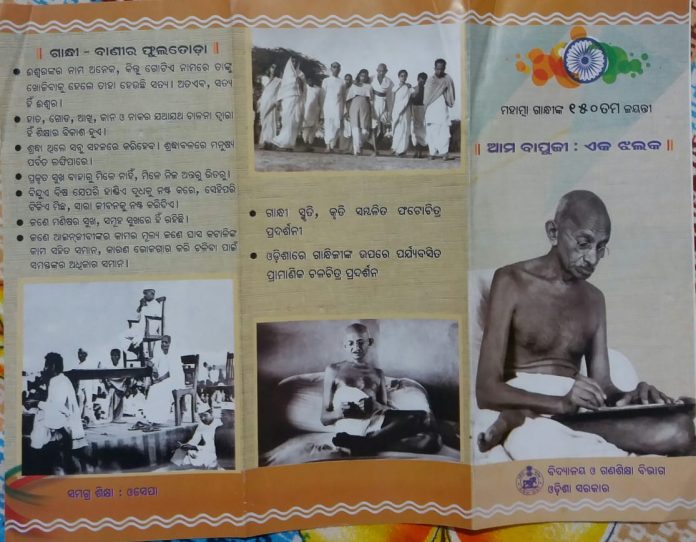 ॥ ଗାନ୍ଧୀ - ବାଣୀର ଫୁଲତୋଡ଼ା ॥
● ଈଶ୍ୱରଙ୍କର ନାମ ଅନେକ, କିନ୍ତୁ ଗୋଟିଏ ନାମରେ ତାଙ୍କୁ
ଖୋଜିବାକୁ ହେଲେ ତାହା ହେଉଛି ସତ୍ୟ। ଅତଏବ, ସତ୍ୟ
ହିଁ ଈଶ୍ୱର।
● ହାତ, ଗୋଡ, ଆଖି, କାନ ଓ ନାକର ଯଥାଯଥ ଚାଳନା ଦ୍ୱାରା
ହିଁ ଶିକ୍ଷାର ବିକାଶ ହୁଏ।
● ଶ୍ରଦ୍ଧା ଥିଲେ ସବୁ ସହଜରେ କରିହେବ। ଶ୍ରଦ୍ଧାବଳରେ ମନୁଷ୍ୟ
ପର୍ବତ ଲଙ୍ଘିପାରେ।
● ପ୍ରକୃତ ସୁଖ ବାହାରୁ ମିଳେ ନାହିଁ, ମିଳେ ନିଜ ଅନ୍ତରୁ ଭିତରୁ।
● ବିନ୍ଦୁଏ ବିଷ ଯେପରି ହାଣ୍ଡିଏ ଦୁଧକୁ ନଷ୍ଟ କରେ, ସେହିପରି
ଟିକିଏ ମିଛ, ସାରା ଜୀବନକୁ ନଷ୍ଟ କରିଦିଏ।
● ଜଣେ ମଣିଷର ସୁଖ, ସମୂହ ସୁଖରେ ହିଁ ରହିଛି।
● ଜଣେ ଆଇନଜୀବୀଙ୍କର କାମର ମୂଲ୍ୟ ଜଣେ ଘାସ କଟାଳିଙ୍କ
କାମ ସହିତ ସମାନ, କାରଣ ରୋଜଗାର କରି ଚଳିବା ପାଇଁ
ସମସ୍ତଙ୍କର ଅଧିକାର ସମାନ।
ସମଗ୍ର ଶିକ୍ଷା : ଓସେପା
● ଗାନ୍ଧୀ ସ୍ମୃତି, କୃତି ସମ୍ବଳିତ ଫଟୋଚିତ୍ର
ପ୍ରଦର୍ଶନୀ
● ଓଡ଼ିଶାରେ ଗାନ୍ଧିଜୀଙ୍କ ଉପରେ ପର୍ଯ୍ୟବସିତ
ପ୍ରାମାଣିକ ଚଳଚିତ୍ର ପ୍ରଦର୍ଶନ
ମହାତ୍ମା ଗାନ୍ଧୀଙ୍କ ୧୫୦ତମ ଜୟନ୍ତୀ
॥ ଆମ ବାପୁଜୀ : ଏକ ଝଲକ ॥
ବିଦ୍ୟାଳୟ ଓ ଗଣଶିକ୍ଷା ବିଭାଗ
ଓଡ଼ିଶା ସରକାର